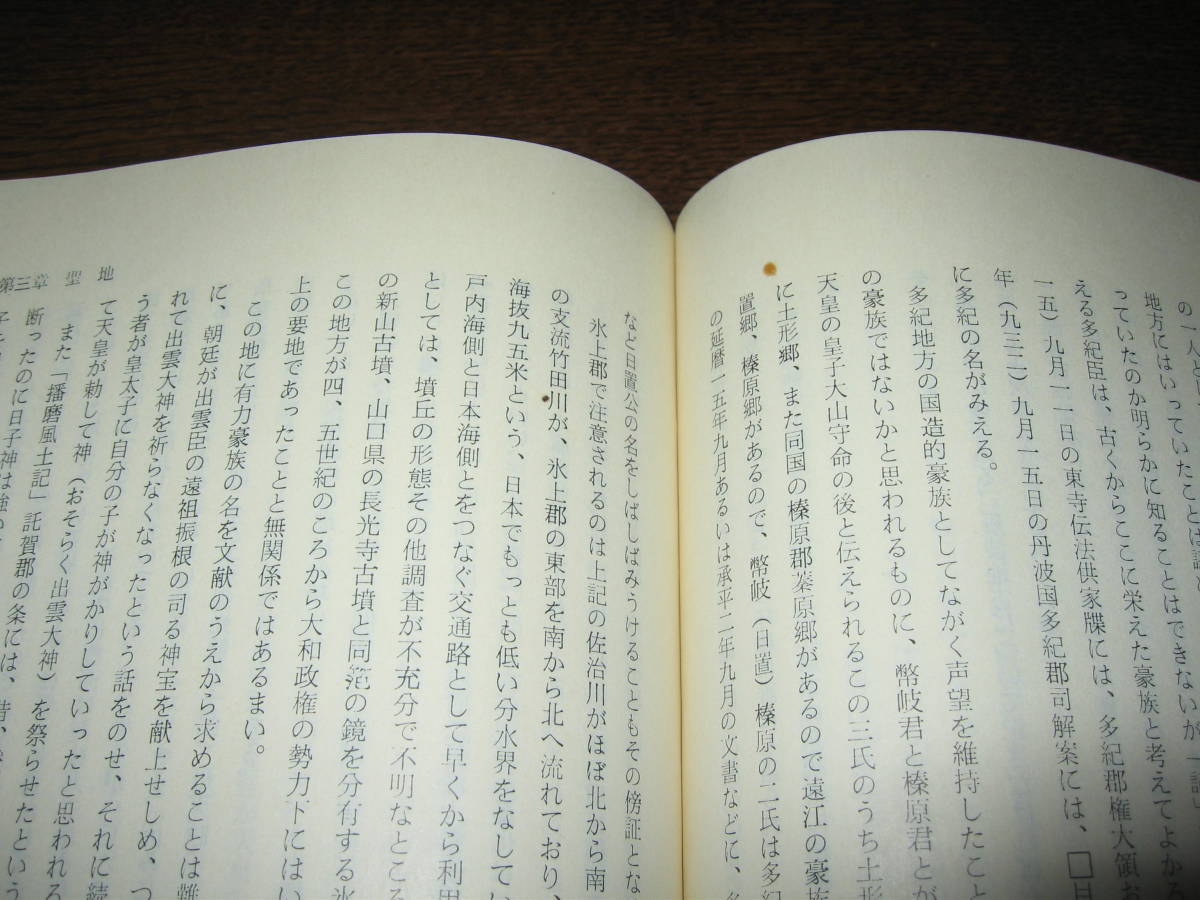 の一人と
地方にはいっていたことは
っていたのか明らかに知ることはできないが
える多紀臣は、古くからここに栄えた豪族と考えてよかろ
一五）九月一一日の東寺伝法供家牒には、多紀郡権大領お
年（九三二）九月一五日の丹波国多紀郡司解案には、□日
に多紀の名がみえる。
多紀地方の国造的豪族としてながく声望を維持したこと
の豪族ではないかと思われるものに、幣岐君と榛原君とが
天皇の皇子大山守命の後と伝えられるこの三氏のうち土形
に土形郷、また同国の榛原郡蓁原郷があるので遠江の豪族
置郷、榛原郷があるので、幣岐（日置）榛原の二氏は多紀
の延暦一五年九月あるいは承平二年九月の文書などに、
など日置公の名をしばしばみうけることもその傍証とな
氷上郡で注意されるのは上記の佐治川がほぼ北から南
の支流竹田川が、氷上郡の東部を南から北へ流れており、
海抜九五米という、日本でもっとも低い分水界をなしてい
戸内海側と日本海側とをつなぐ交通路として早くから利用
としては、墳丘の形態その他調査が不充分で不明なところ
の新山古墳、山口県の長光寺古墳と同笵の鏡を分有する氷
この地方が四、五世紀のころから大和政権の勢力下にはい
上の要地であったことと無関係ではあるまい。
この地に有力豪族の名を文献のうえから求めることは難
に、朝廷が出雲臣の遠祖振根の司る神宝を献上せしめ、つ
れて出雲大神を祈らなくなったという話をのせ、それに続
う者が皇太子に自分の子が神がかりしていったと思われろ
て天皇が勅して神（おそらく出雲大神）を祭らせたという
また「播磨風土記」託賀郡の条には、昔、
断ったのに日子神は強い
第三章 聖地